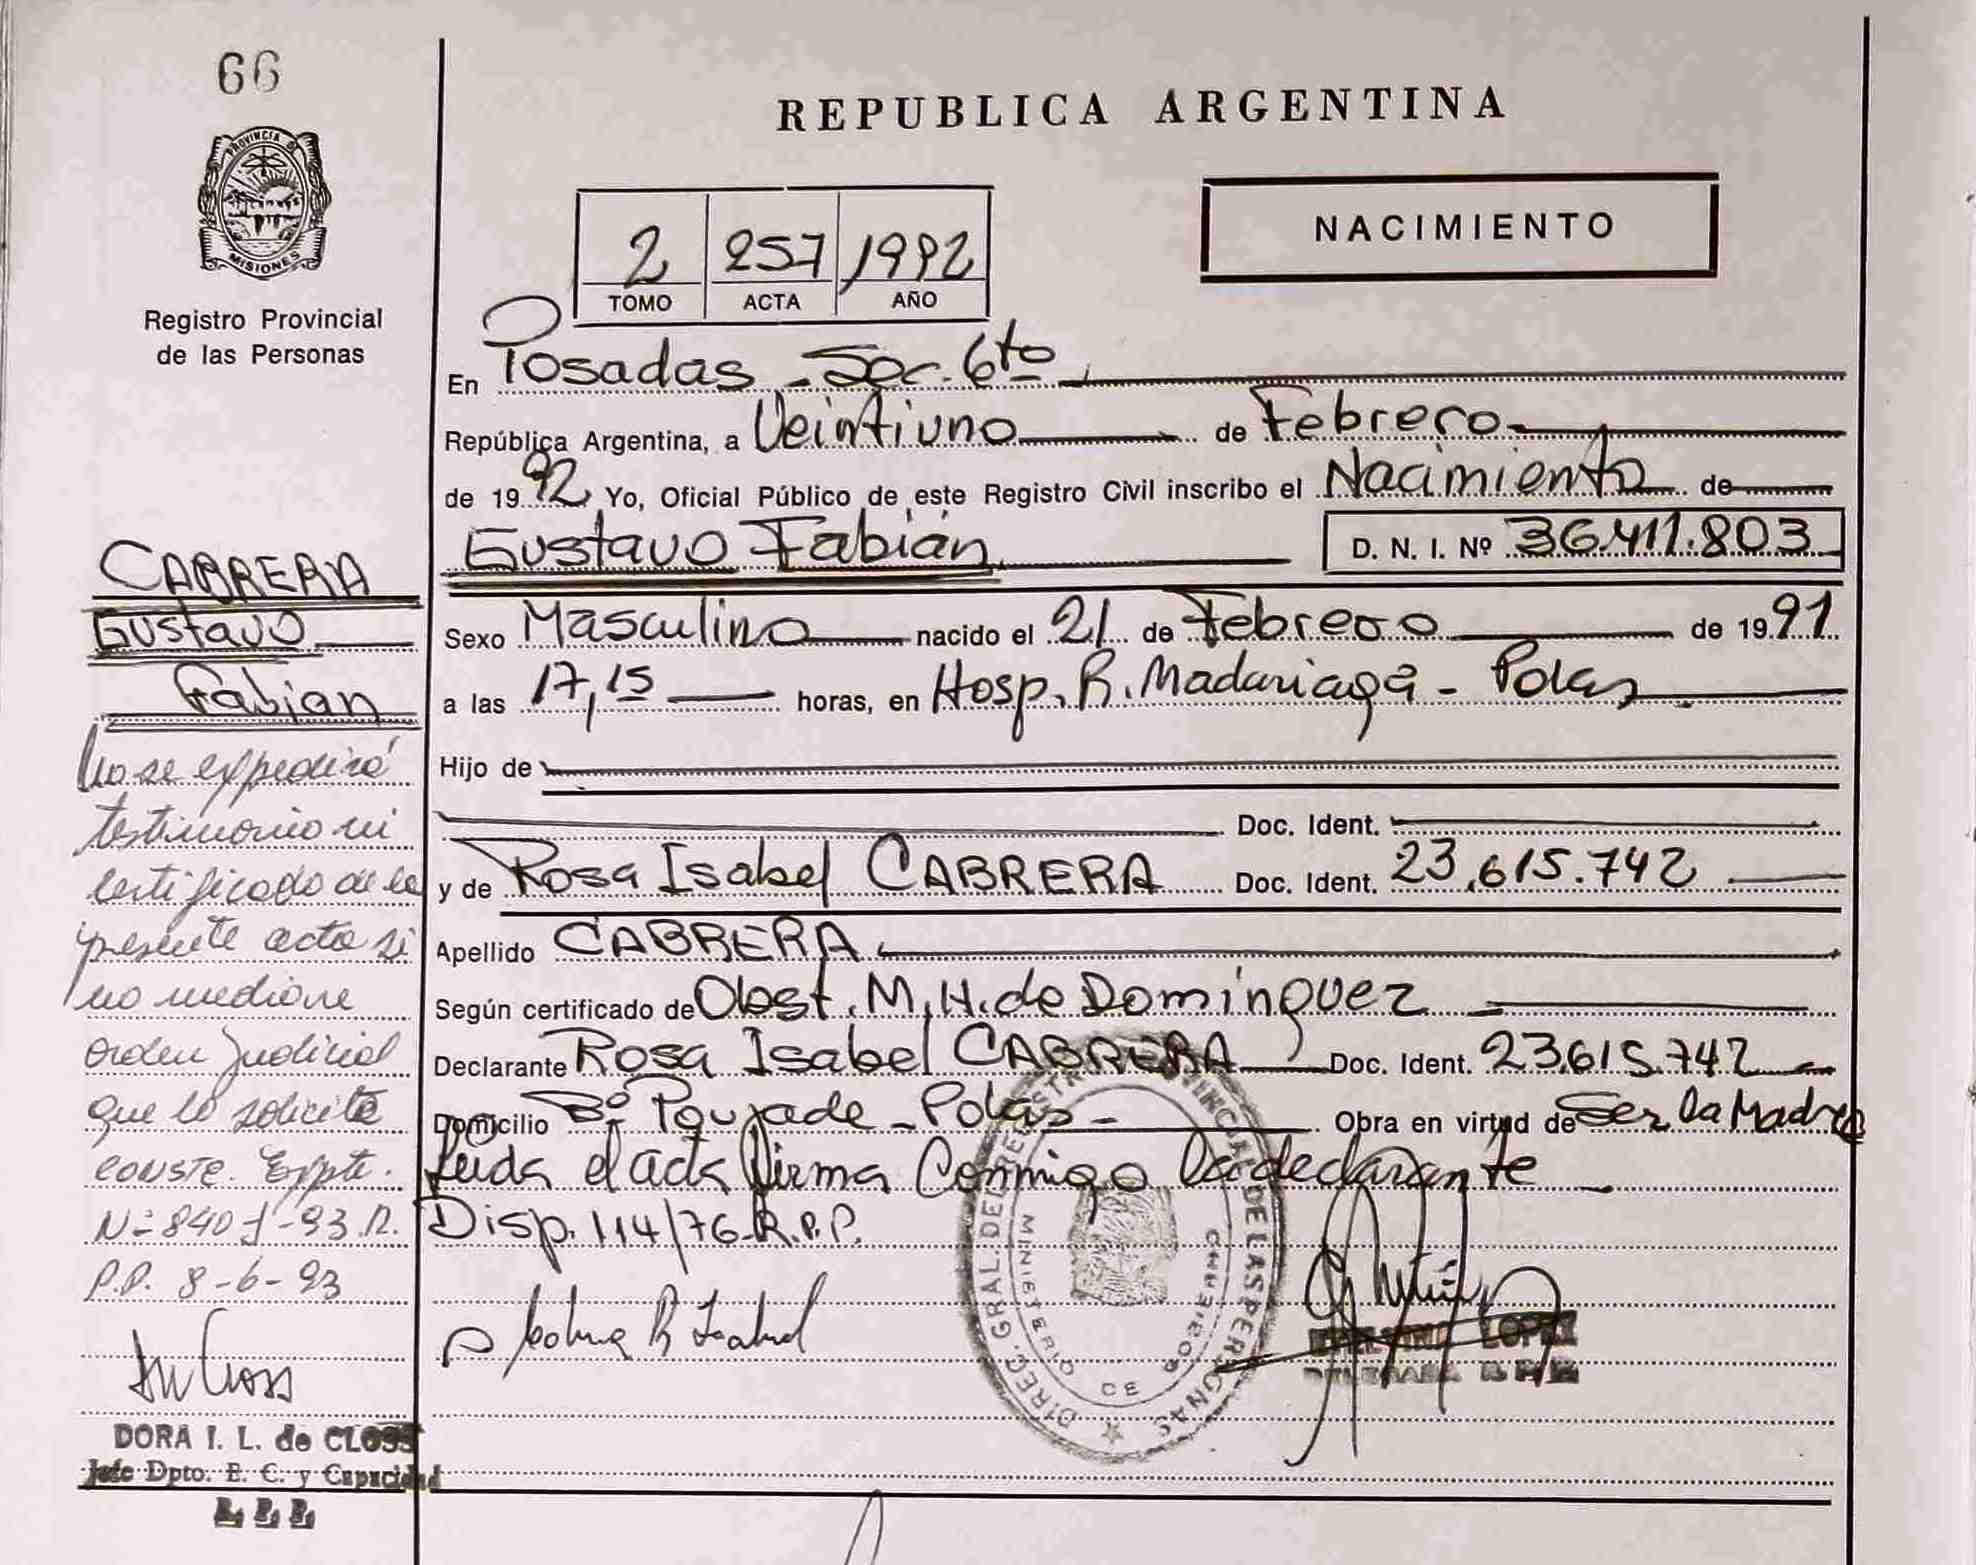 66
PROVINCIA DE
MISIONES
Registro Provincial
de las Personas
REPUBLICA ARGENTINA
NACIMIENTO
2 257 1992
TOMO ACTA AÑO
En Posadas - Sec. 6to
República Argentina, a Veintiuno de Febrero
de 1992 Yo, Oficial Público de este Registro Civil inscribo el Nacimiento de
Gustavo Fabián D. N. I. Nº 36.411.803
Sexo Masculino nacido el 21 de Febrero de 1991
a las 17,15 horas, en Hosp. R. Madariaga - Pdas
Hijo de
Doc. Ident.
y de Rosa Isabel CABRERA Doc. Ident. 23.615.742
Apellido CABRERA
Según certificado de Obst. M. H. de Domínguez
Declarante Rosa Isabel CABRERA Doc. Ident. 23.615.742
Domicilio Bº Poujade - Pdas - Obra en virtud de Ser la Madre
Leida el acta firma Conmigo la declarante
Disp. 114/76-R.P.P.
Isabel
LOPEZ
CABRERA
Gustavo
Fabian
No se expedirá
testimonio ni
certificado de la
presente acta si
no mediare
orden judicial
que lo solicite
CONSTE. Expte.
P.P. 8-6-93
DORA I. L. de CLOSS
Jefe Dpto. E. C. y Capacidad
DIREC. GRAL. DEL REGISTRO PROVINCIAL DE LAS PERSONAS
MINISTERIO DE GOBIERNO